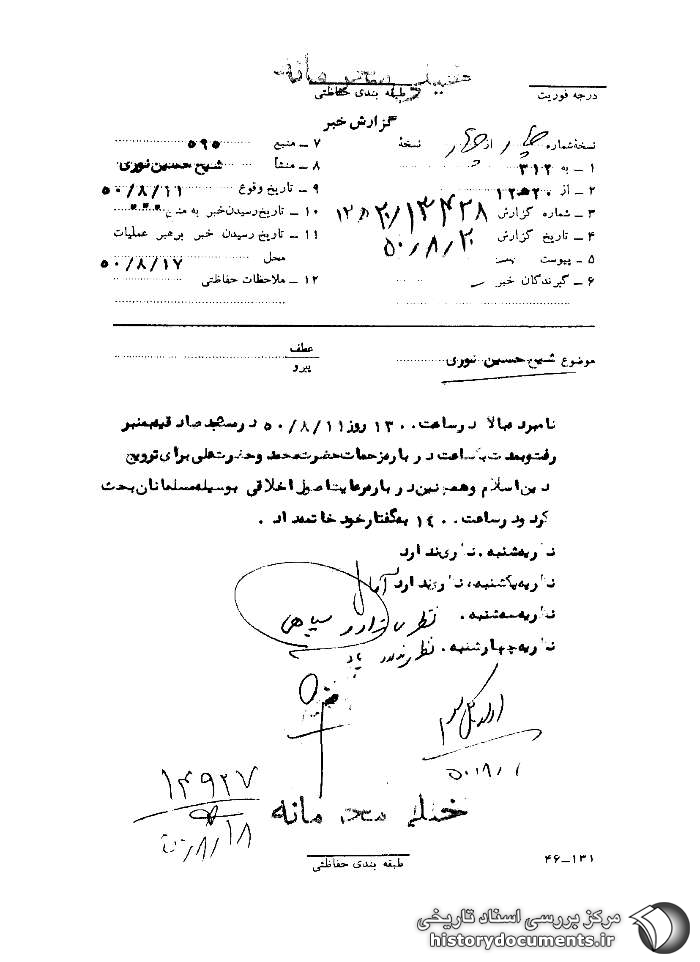 خیلی محرمانه
درجه فوریت
طبقه بندی حفاظتی
گزارش خبر
نسخهٔ شماره چهار از چهار نسخهٔ
۱ – به ۳۱۲
۲ – از ۱۲ ۲۰
۳ – شماره گزارش
۴ – تاریخ گزارش ۵۰/۸/۲۰
۵ – پیوست
۶ – گیرندگان خبر
۷ – منبع ۵۹۵
۸ – منشأ شیخ حسین نوری
۹ – تاریخ وقوع ۵۰/۸/۱۱
۱۰ – تاریخ رسیدن خبر به منبع
۱۱ – تاریخ رسیدن خبر برهبر عملیات
محل ۵۰/۸/۱۷
۱۲ – ملاحظات حفاظتی
موضوع شیخ حسین نوری
عطف
پیرو
نامبرده بالا در ساعت ۱۳۰۰ روز ۵۰/۸/۱۱ در مسجد صادقیه منبر
رفت و بمدت یکساعت درباره زحمات حضرت محمد و حضرت علی برای ترویج
دین اسلام و همچنین درباره رعایت اصول اخلاقی بوسیله مسلمانان بحث
کرد و در ساعت ۱۴۰۰ به گفتار خود خاتمه داد .
نظریه شنبه . نظری ندارد
نظریه یکشنبه . نظری ندارد
نظریه سه‌شنبه . نظری ندارد
نظریه چهارشنبه . نظری ندارد
۱۴۹۲۷
۵۰/۸/۱۸
خیلی محرمانه
طبقه بندی حفاظتی
۴۶–۱۳۱
مرکز بررسی اسناد تاریخی
historydocuments.ir